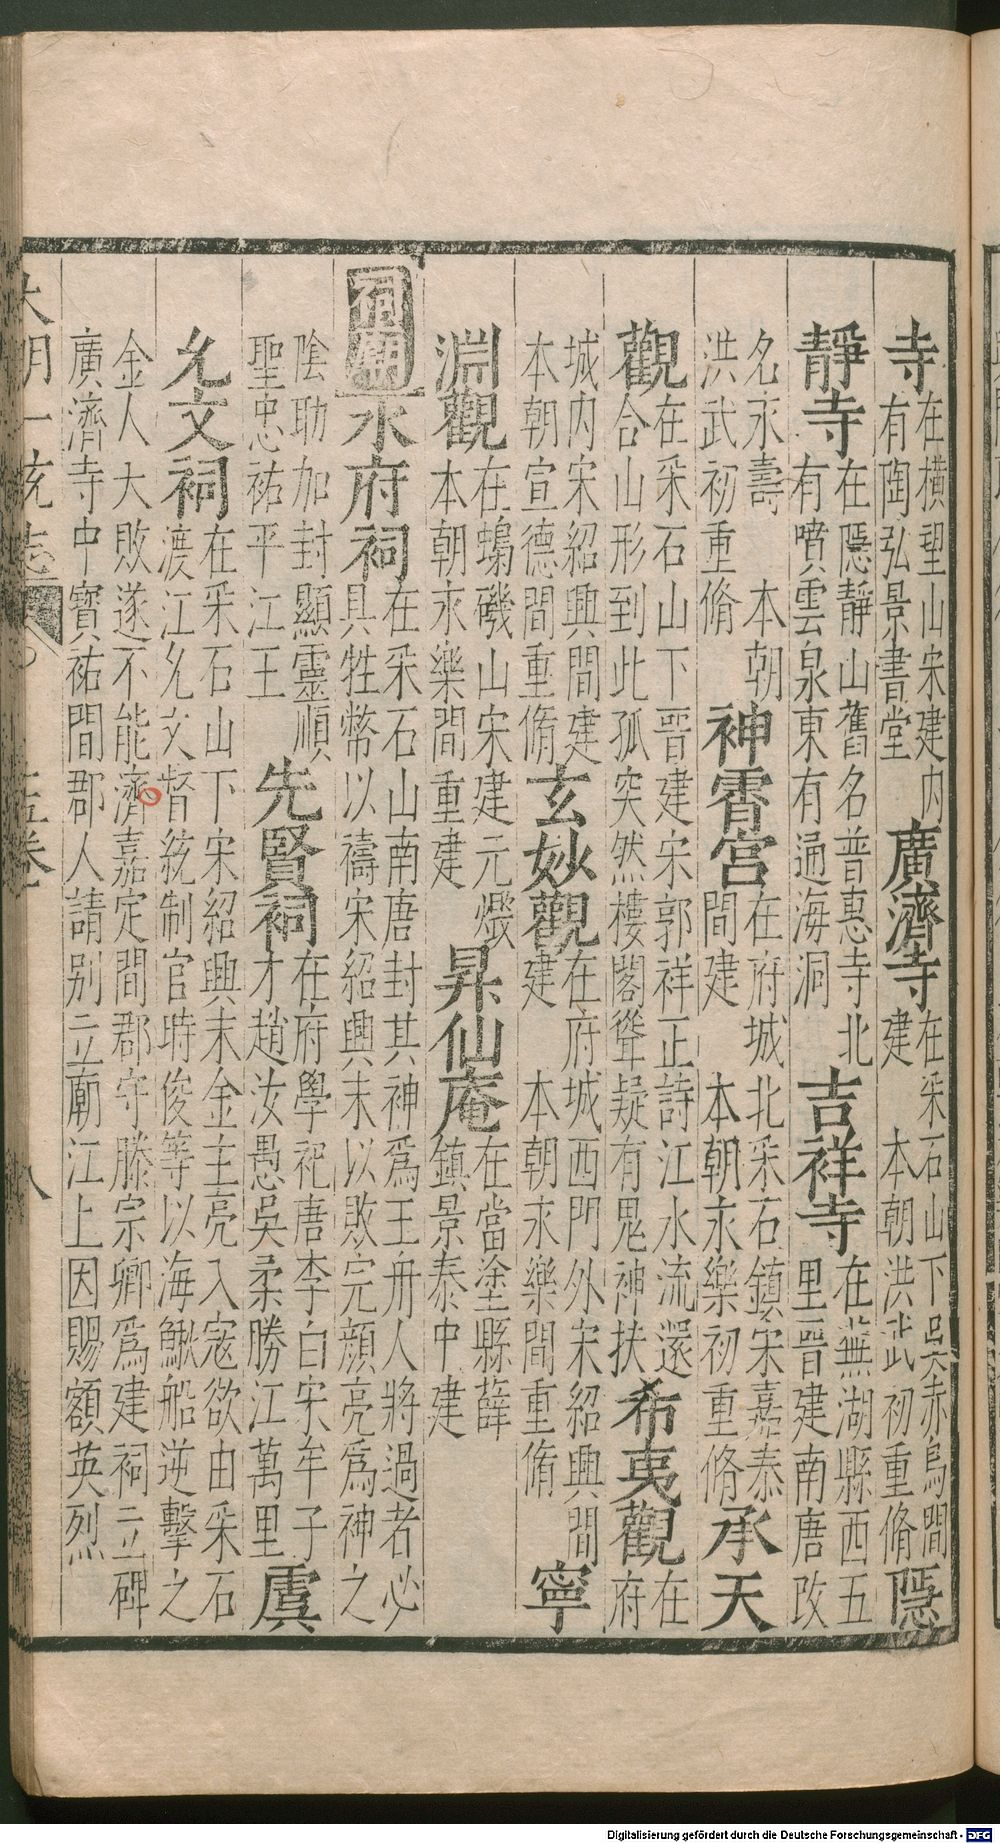 寺在橫望山宋建内有陶弘景書堂廣濟寺在采石山下吳赤烏間建　本朝洪武初重脩隱
靜寺在隱靜山舊名普惠寺北有噴雲泉東有通海洞吉祥寺在蕪湖縣西五里晉建南唐改
名永壽　本朝洪武初重脩神霄宮在府城北采石鎮宋嘉泰間建　本朝永樂初重脩承天
觀在采石山下晉建宋郭祥正詩江水流還合山形到此孤突然樓閣聳疑有鬼神扶希夷觀在府
城内宋紹興間建本朝宣德間重脩玄妙觀在府城西門外宋紹興間建　本朝永樂間重脩寧
淵觀在蟂磯山宋建元燬本朝永樂間重建昇仙庵在當塗縣薛鎮景泰中建
祠廟水府祠在采石山南唐封其神爲王舟人將過者必具牲幣以禱宋紹興末以敗完顔亮爲神之
陰助加封顯靈順聖忠祐平江王先賢祠在府學祀唐李白宋牟子才趙汝愚吳柔勝江萬里虞
允文祠在采石山下宋紹興末金主亮入寇欲由采石渡江允文督統制官時俊等以海鰍船逆擊之
金人大敗遂不能濟嘉定間郡守滕宗卿爲建祠立碑廣濟寺中寳祐間郡人請别立廟江上因賜額英烈
大明一統志　五卷　八
Digitalisierung gefördert durch die Deutsche Forschungsgemeinschaft - DFG